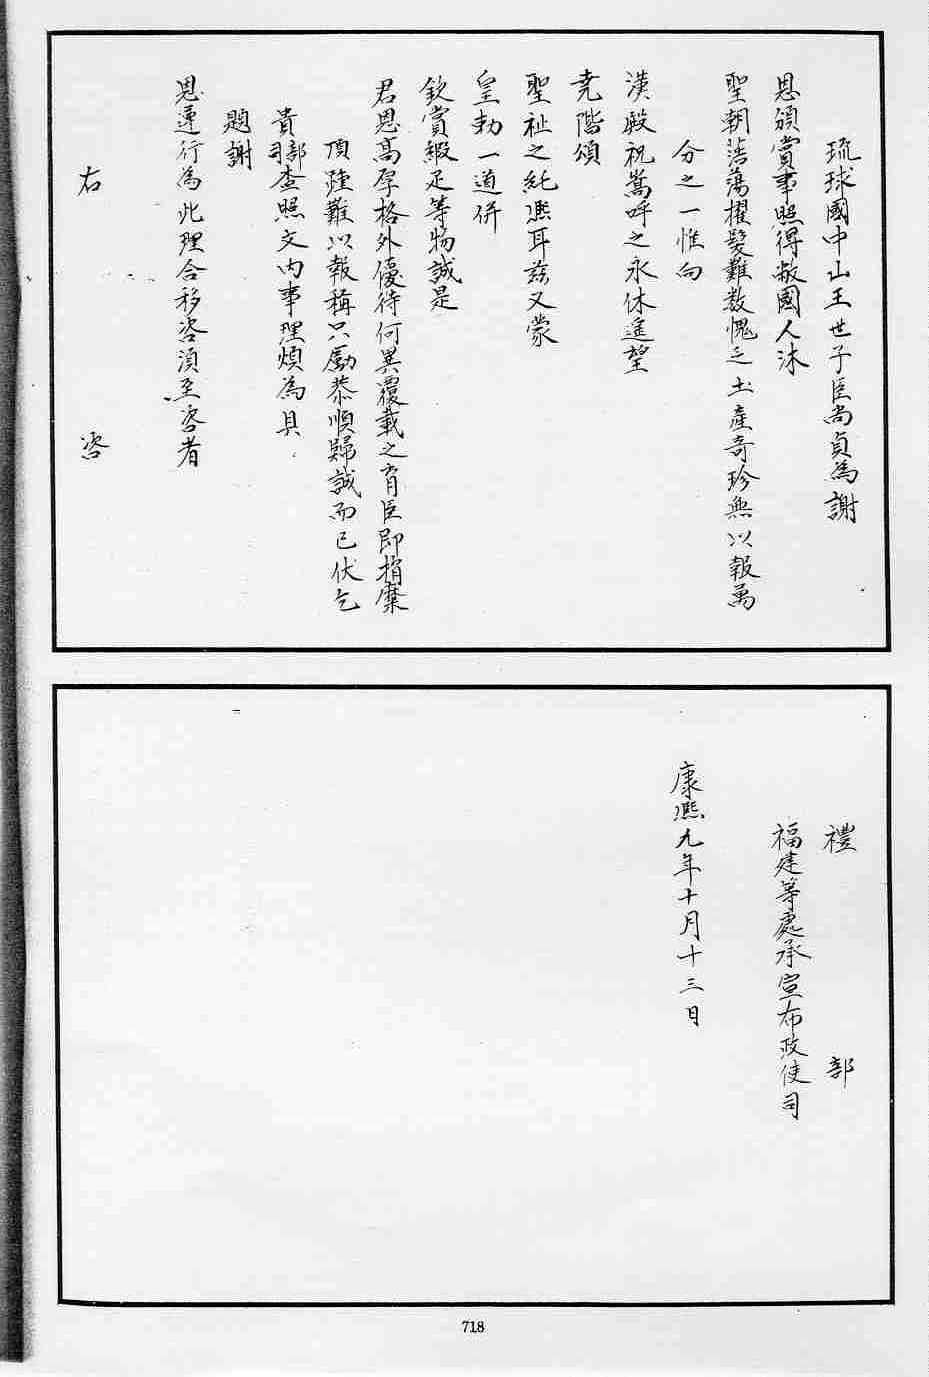 琉球國中山王世子臣尚貞為謝
恩頒賞事照得敝國人沐
聖朝浩蕩擢髮難数愧乏土產奇珍無以報萬
分之一惟向
漢殿祝嵩呼之永休遙望
堯階頌
聖祉之純熈耳兹又蒙
皇勅一道併
欽賞緞疋等物誠是
君恩高厚格外優待何異覆載之育臣即捐糜
頂踵難以報稱只勵恭順歸誠而已伏乞
貴部司查照文内事理煩為具
題謝
恩運行為此理合移咨須至咨者
右咨
禮部
福建等處承宣布政使司
康熈九年十月十三日
718